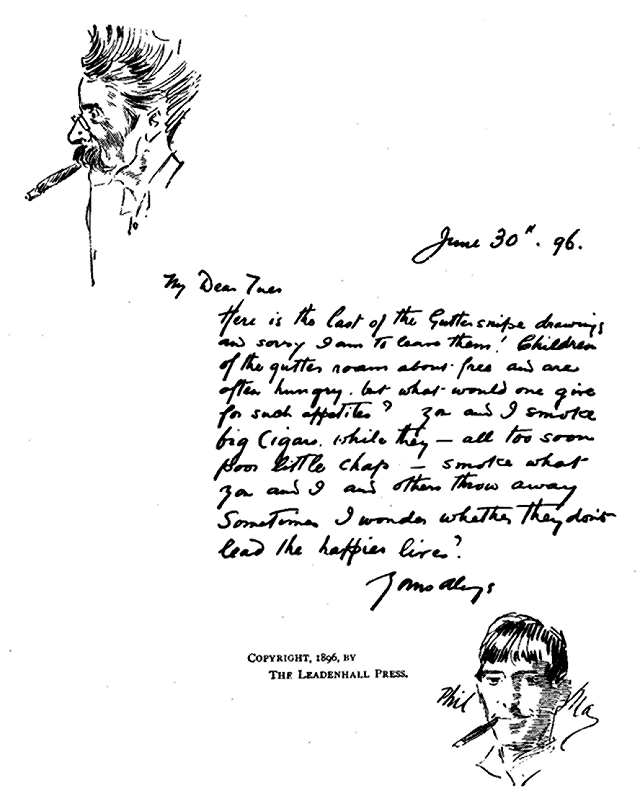 June 30th. 96.
My Dear Tuer
Here is the last of the Guttersnipe drawings
and sorry I am to leave them! Children
of the gutter roam about free and are
often hungry. but what would one give
for such appetites? You and I smoke
big Cigars. while they — all too soon
poor little chaps — smoke what
you and I and others throw away
Sometimes I wonder whether they don't
lead the happier lives?
Yours always
Phil May
COPYRIGHT, 1896, BY
THE LEADENHALL PRESS.